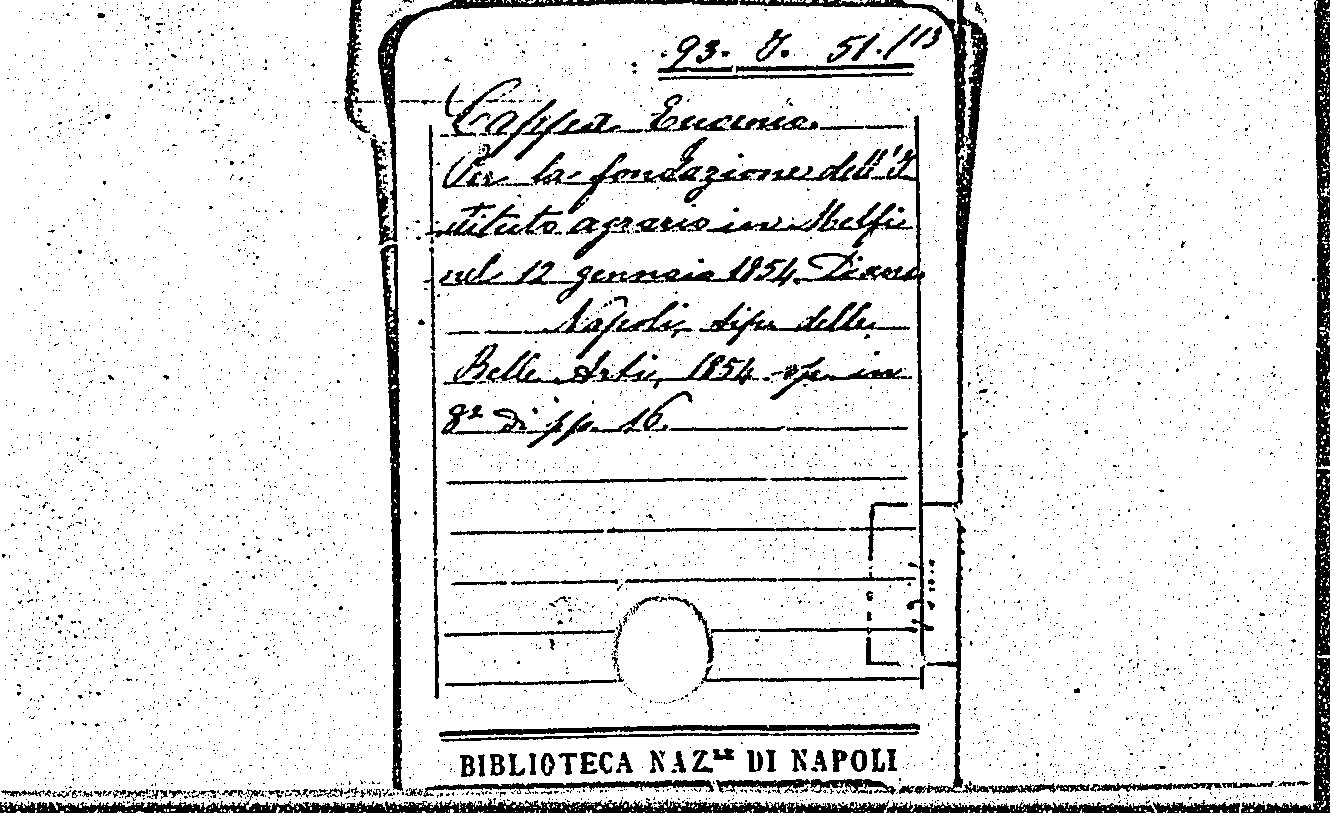 93. J. 51./113
Cappa Eugenio.
Per la fondazione dell'I
stituto agrario in Melfi
nel 12 gennaio 1854.
Napoli, tip. delle
Belle Arti, 1854 op. in
8º di pp. 16.
BIBLIOTECA NAZLE DI NAPOLI